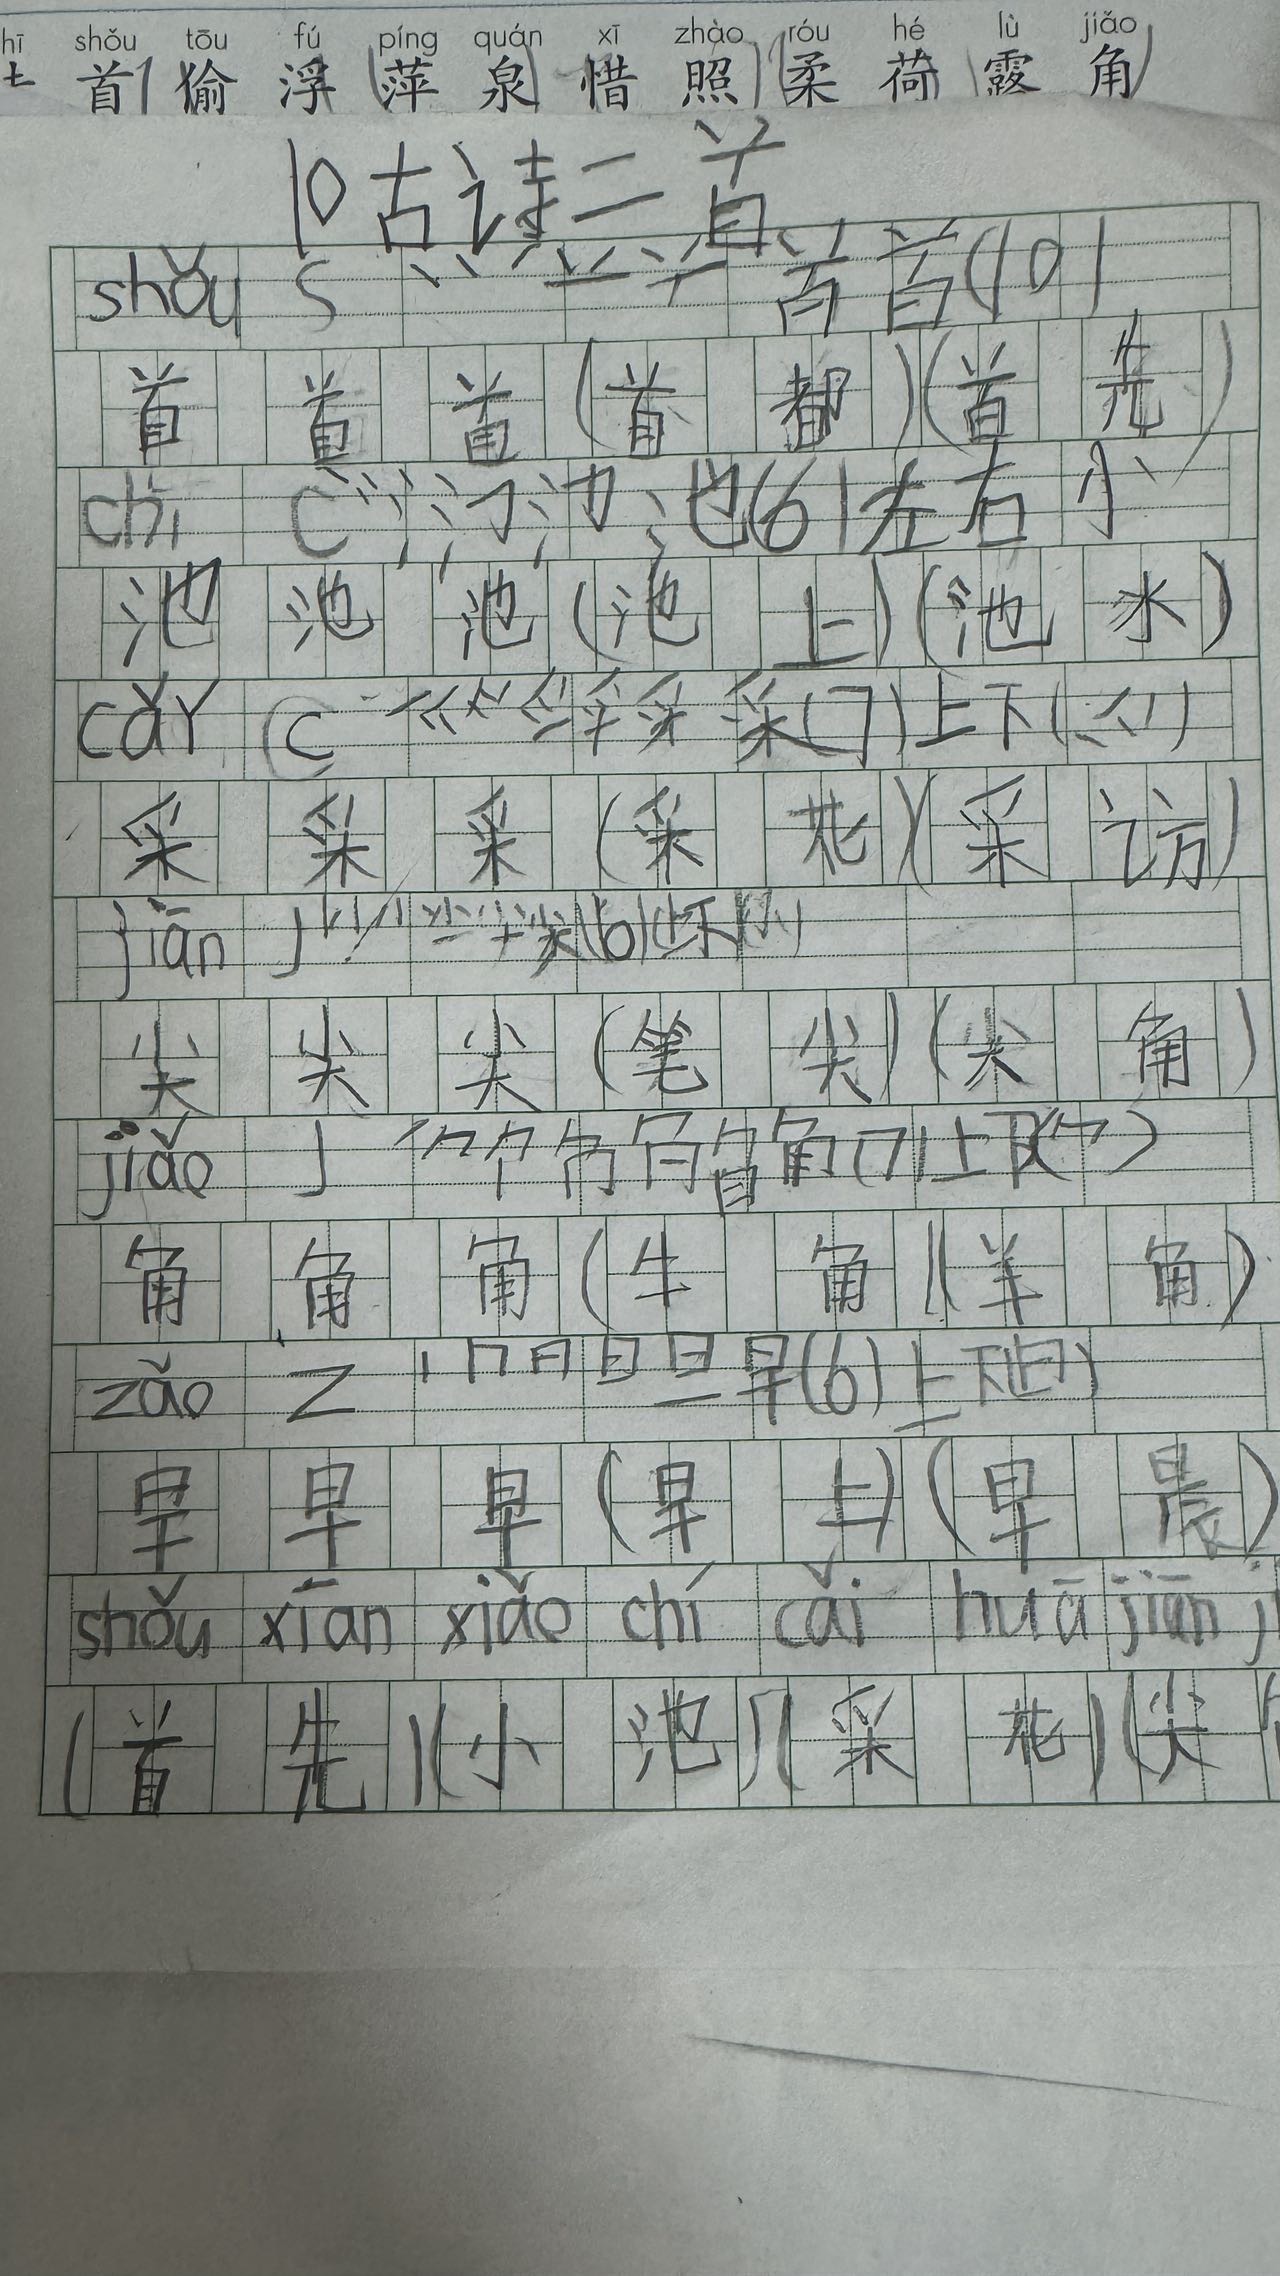 shǒu tōu fú píng quán xī zhào róu hé lù jiǎo
首 偷 浮 (萍 泉) 惜 照 (柔 荷 (露 角)
10 古诗二首
shǒu S 首 (10)
首 首 首 (首都) (首先)
chí C 池 (6) 左右
池 池 池 (池上) (池水)
cǎi C 采 (7) 上下
采 采 采 (采花) (采访)
jiān j 尖 (6) 上下
尖 尖 尖 (笔尖) (尖角)
jiǎo j 角 (7) 上下
角 角 角 (牛角) (羊角)
zǎo z 丨 冂 日 日 旦 早 (6) 上下 (日)
早 早 早 (早上) (早晨)
shǒu xiān xiǎo chí cǎi huā jiān j
(首先) (小池) (采花) (尖